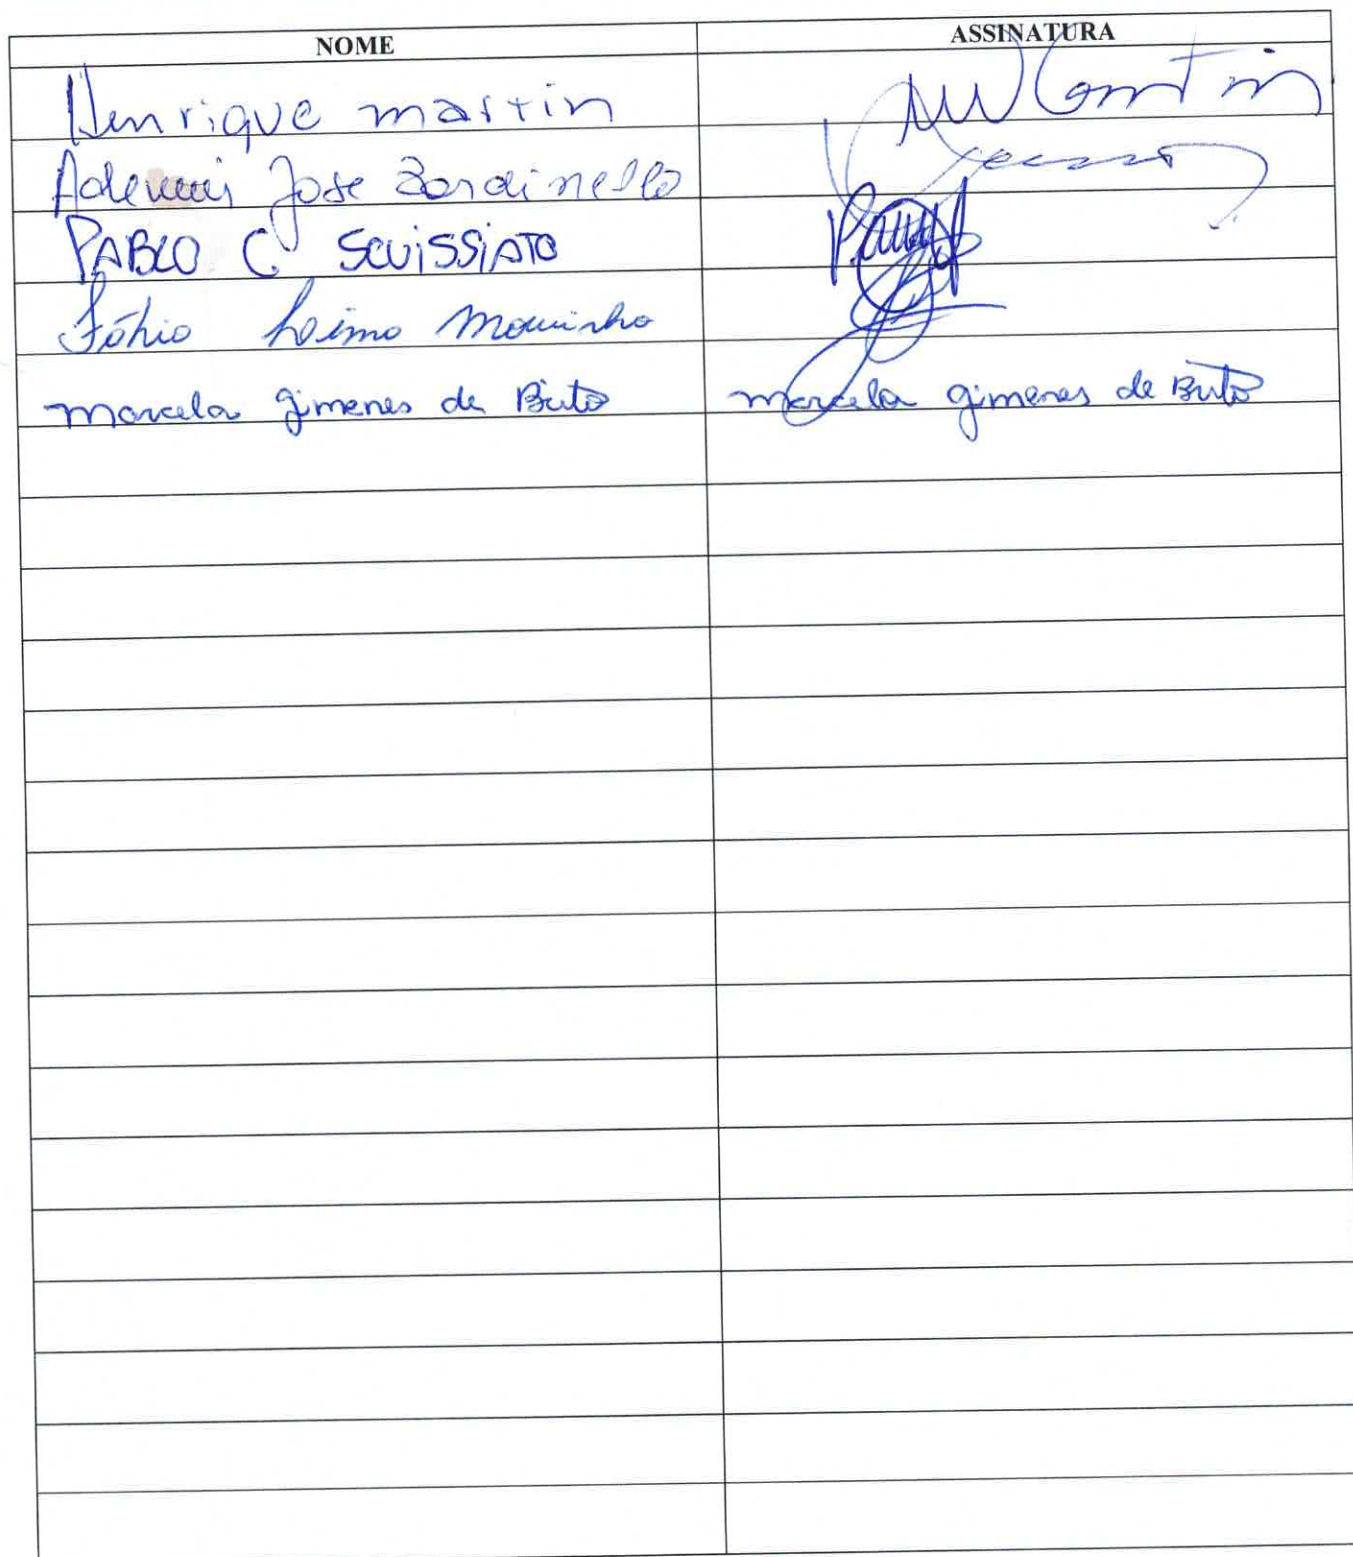 NOME ASSINATURA
Henrique martin
Ademir Jose Zardinello
PABLO C. SCUISSIATO
Fábio Leima Mourinho
marcela gimenes de Brito marcela gimenes de Brito